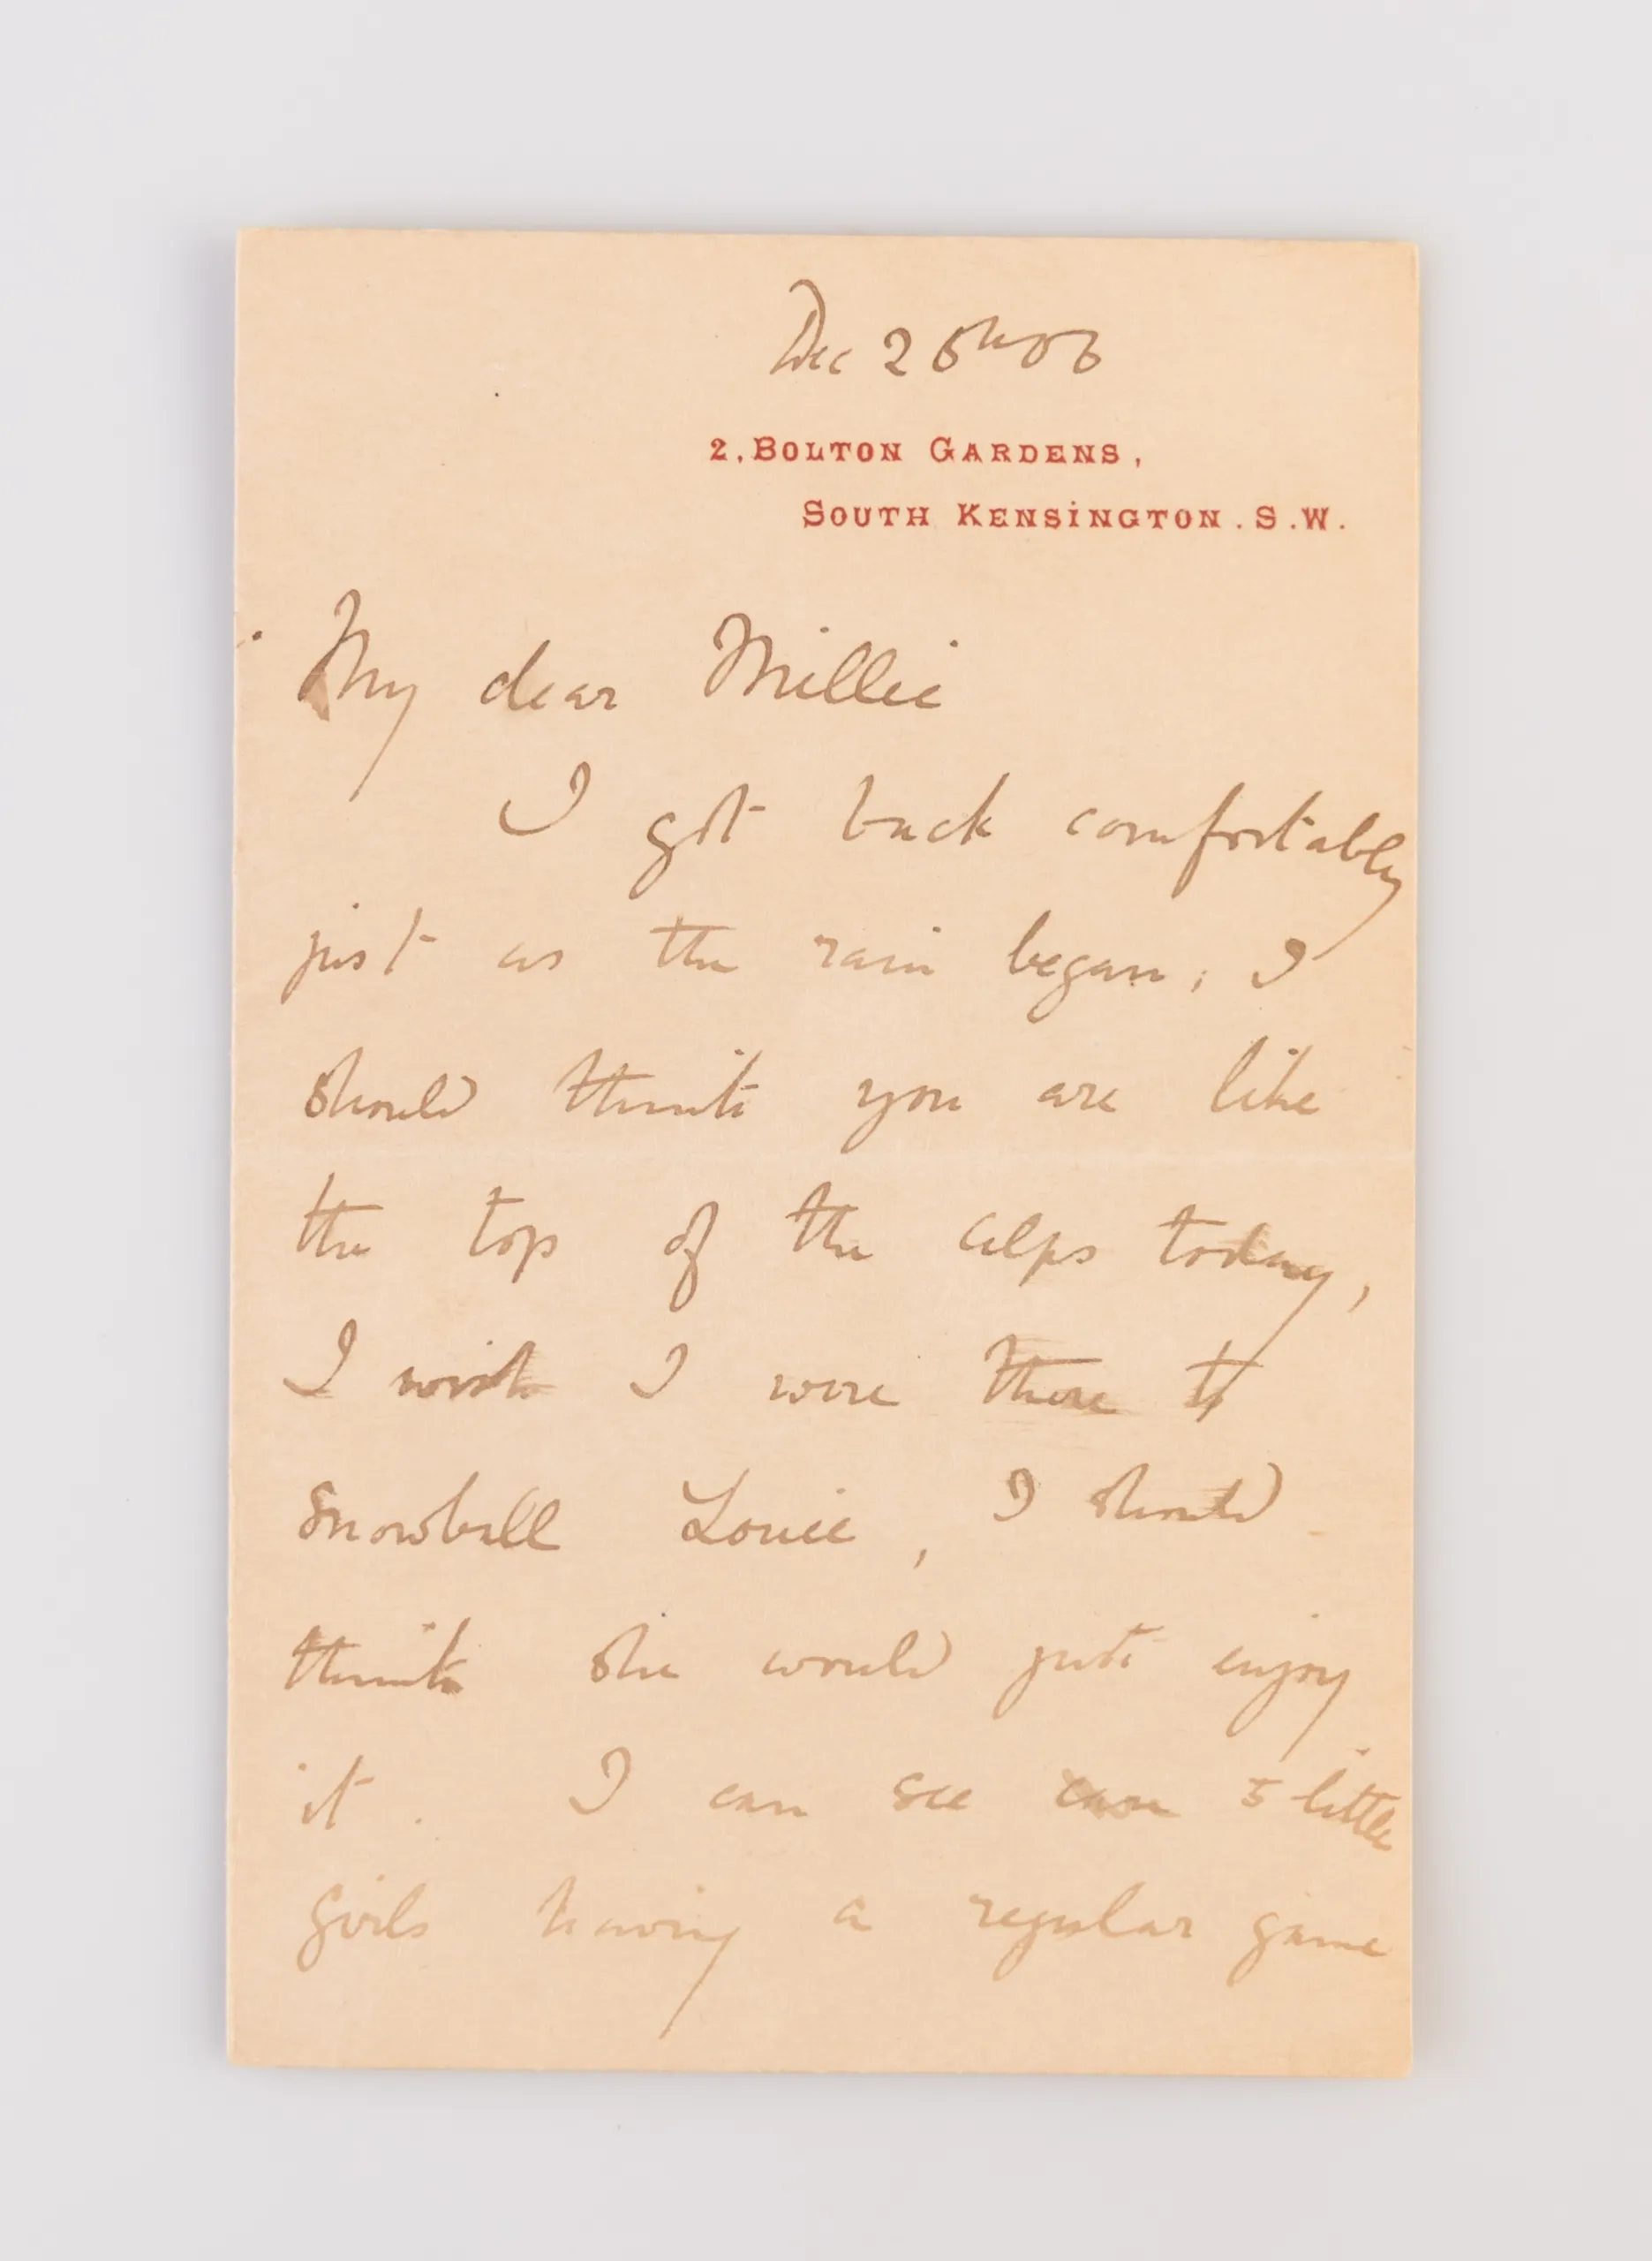 Dec 26th 06
2, BOLTON GARDENS,
SOUTH KENSINGTON. S.W.
My dear Millie
I got back comfortably
just as the rain began; I
should think you are like
the top of the alps today,
I wish I were there to
snowball Louie, I should
think she would just enjoy
it. I can see 5 little
girls having a regular game